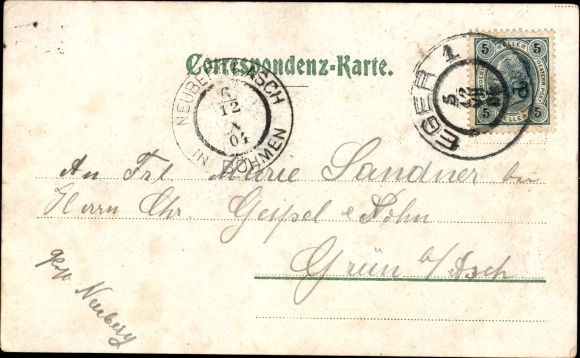 Correspondenz-Karte.
5 HELLER 5
5 HELLER 5
EGER 1
5 12
NEUBERG B. ASCH
12
04
IN BÖHMEN
An Frl Marie Sandner bei
Herrn Chr. Geipel & Sohn
Grün b/Asch
Neuberg